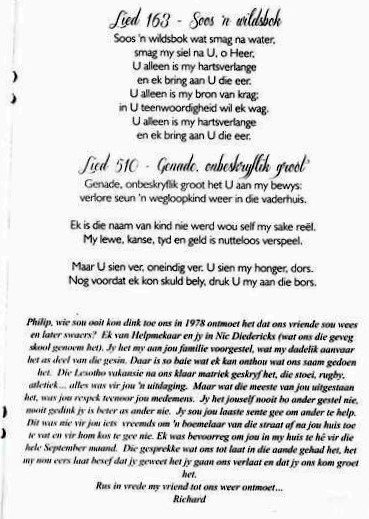 Lied 163 - Soos 'n wildsbok
Soos 'n wildsbok wat smag na water,
smag my siel na U, o Heer,
U alleen is my hartsverlange
en ek bring aan U die eer.
U alleen is my bron van krag;
in U teenwoordigheid wil ek wag.
U alleen is my hartsverlange
en ek bring aan U die eer.
Lied 510 - Genade, onbeskryflik groot
Genade, onbeskryflik groot het U aan my bewys:
verlore seun 'n wegloopkind weer in die vaderhuis.
Ek is die naam van kind nie werd wou self my sake reël.
My lewe, kanse, tyd en geld is nutteloos verspeel.
Maar U sien ver, oneindig ver. U sien my honger, dors.
Nog voordat ek kon skuld bely, druk U my aan die bors.
Philip, wie sou ooit kon dink toe ons in 1978 ontmoet het dat ons vriende sou wees
en later swaers? Ek van Helpmekaar en jy in Nic Diedericks (wat ons die geveg
skool genoem het). Jy het my aan jou familie voorgestel, wat my dadelik aanvaar
het as deel van die gesin. Daar is so baie wat ek kan onthou wat ons saam gedoen
het. Die Lesotho vakansie na ons klaar matriek geskryf het, die stoei, rugby,
atletiek... alles was vir jou 'n uitdaging. Maar wat die meeste van jou uitgestaan
het, was jou respek teenoor jou medemens. Jy het jouself nooit bo ander gestel nie,
nooit gedink jy is beter as ander nie. Jy sou jou laaste sente gee om ander te help.
Dit was nie vir jou iets vreemds om 'n boemelaar van die straat af na jou huis toe
te vat en vir hom kos te gee nie. Ek was bevoorreg om jou in my huis te hê vir die
hele September maand. Die gesprekke wat ons tot laat in die aande gehad het, het
my nou eers laat besef dat jy geweet het jy gaan ons verlaat en dat jy ons kom groet
het.
Rus in vrede my vriend tot ons weer ontmoet...
Richard